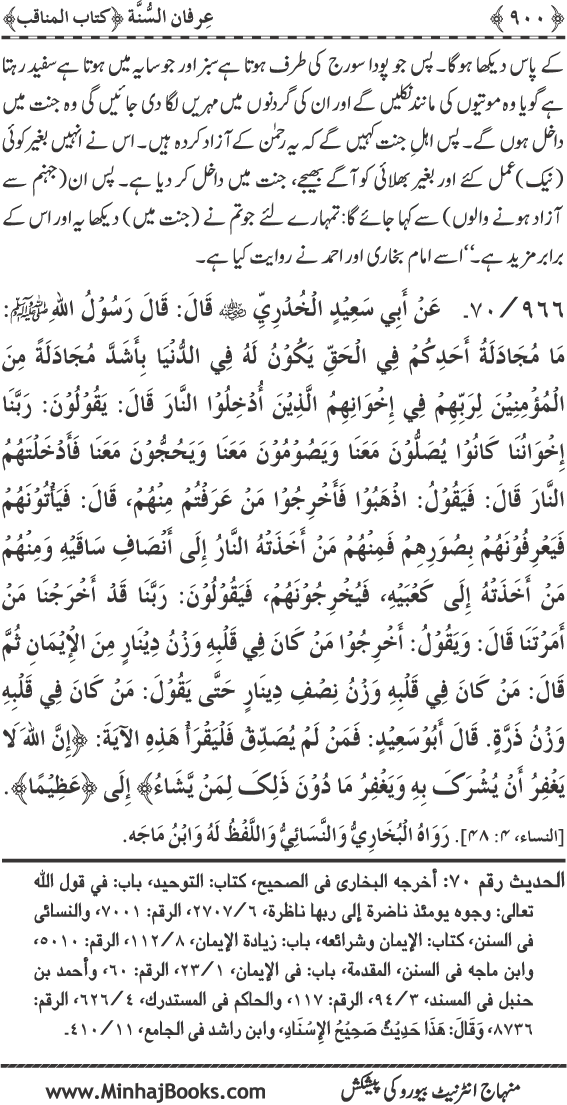 ﴿۹۰۰﴾ عِرفانُ السُّنَّة ﴿کتاب المناقب﴾
کے پاس دیکھا ہوگا۔ پس جو پودا سورج کی طرف ہوتا ہے سبز اور جو سایہ میں ہوتا ہے سفید رہتا
ہے گویا وہ موتیوں کی مانند نکلیں گے اور ان کی گردنوں میں مہریں لگا دی جائیں گی وہ جنت میں
داخل ہوں گے۔ پس اہلِ جنت کہیں گے کہ یہ رحمٰن کے آزاد کردہ ہیں۔ اس نے انہیں بغیر کوئی
(نیک) عمل کئے اور بغیر بھلائی کو آگے بھیجے، جنت میں داخل کر دیا ہے۔ پس ان (جہنم سے
آزاد ہونے والوں) سے کہا جائے گا: تمہارے لئے جو تم نے (جنت میں) دیکھا یہ اور اس کے
برابر مزید ہے۔‘‘ اسے امام بخاری اور احمد نے روایت کیا ہے۔
۹۶۶ / ۷۰۔ عَنْ أَبِي سَعِيْدٍ الْخُدْرِيِّ ﷜ قَالَ: قَالَ رَسُوْلُ اللهِ ﷺ:
مَا مُجَادَلَةُ أَحَدِكُمْ فِي الْحَقِّ يَكُوْنُ لَهُ فِي الدُّنْيَا بِأَشَدَّ مُجَادَلَةً مِنَ
الْمُؤْمِنِيْنَ لِرَبِّهِمْ فِي إِخْوَانِهِمُ الَّذِيْنَ أُدْخِلُوْا النَّارَ قَالَ: يَقُوْلُوْنَ: رَبَّنَا
إِخْوَانُنَا كَانُوْا يُصَلُّوْنَ مَعَنَا وَيَصُوْمُوْنَ مَعَنَا وَيَحُجُّوْنَ مَعَنَا فَأَدْخَلْتَهُمُ
النَّارَ قَالَ: فَيَقُوْلُ: اذْهَبُوْا فَأَخْرِجُوْا مَنْ عَرَفْتُمْ مِنْهُمْ، قَالَ: فَيَأْتُوْنَهُمْ
فَيَعْرِفُوْنَهُمْ بِصُوَرِهِمْ فَمِنْهُمْ مَنْ أَخَذَتْهُ النَّارُ إِلَى أَنْصَافِ سَاقَيْهِ وَمِنْهُمْ
مَنْ أَخَذَتْهُ إِلَى كَعْبَيْهِ، فَيُخْرِجُوْنَهُمْ، فَيَقُوْلُوْنَ: رَبَّنَا قَدْ أَخْرَجْنَا مَنْ
أَمَرْتَنَا قَالَ: وَيَقُوْلُ: أَخْرِجُوْا مَنْ كَانَ فِي قَلْبِهِ وَزْنُ دِيْنَارٍ مِنَ الْإِيْمَانِ ثُمَّ
قَالَ: مَنْ كَانَ فِي قَلْبِهِ وَزْنُ نِصْفِ دِيْنَارٍ حَتَّى يَقُوْلَ: مَنْ كَانَ فِي قَلْبِهِ
وَزْنُ ذَرَّةٍ. قَالَ أَبُوْسَعِيْدٍ: فَمَنْ لَمْ يُصَدِّقْ فَلْيَقْرَأْ هَذِهِ الآيَةَ: ﴿إِنَّ اللهَ لَا
يَغْفِرُ أَنْ يُشْرَكَ بِهِ وَيَغْفِرُ مَا دُوْنَ ذَلِكَ لِمَنْ يَّشَاءُ﴾ إِلَى ﴿عَظِيْمًا﴾.
[النساء، ۴: ۴۸]. رَوَاهُ الْبُخَارِيُّ وَالنَّسَائِيُّ وَاللَّفْظُ لَهُ وَابْنُ مَاجَه.
الحديث رقم ۷۰: أخرجه البخارى فى الصحيح، كتاب: التوحيد، باب: في قول الله
تعالى: وجوه يومئذ ناضرة إلى ربها ناظرة، ۶/۲۷۰۷، الرقم: ۷۰۰۱، والنسائى
فى السنن، كتاب: الإيمان وشرائعه، باب: زيادة الإيمان، ۸/۱۱۲، الرقم: ۵۰۱۰،
وابن ماجه فى السنن، المقدمة، باب: فى الإيمان، ۱/۲۳، الرقم: ۶۰، وأحمد بن
حنبل فى المسند، ۳/۹۴، الرقم: ۱۱۷، والحاكم فى المستدرك، ۴/۶۲۶، الرقم:
۸۷۳۶، وَقَالَ: هَذَا حَدِيْثٌ صَحِيْحُ الإِسْنَادِ، وابن راشد فى الجامع، ۱۱/۴۱۰۔
منہاج انٹرنیٹ بیورو کی پیشکش www.MinhajBooks.com